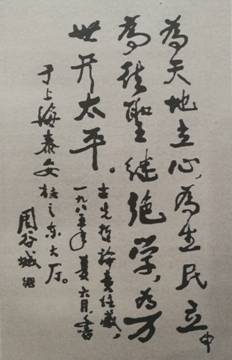 為天地立心,為生民立
為往聖继绝学,為万
世开太平。
古先哲論責任感,
一九八五年夏六月書
于上海泰安
之东大厅。
周谷城